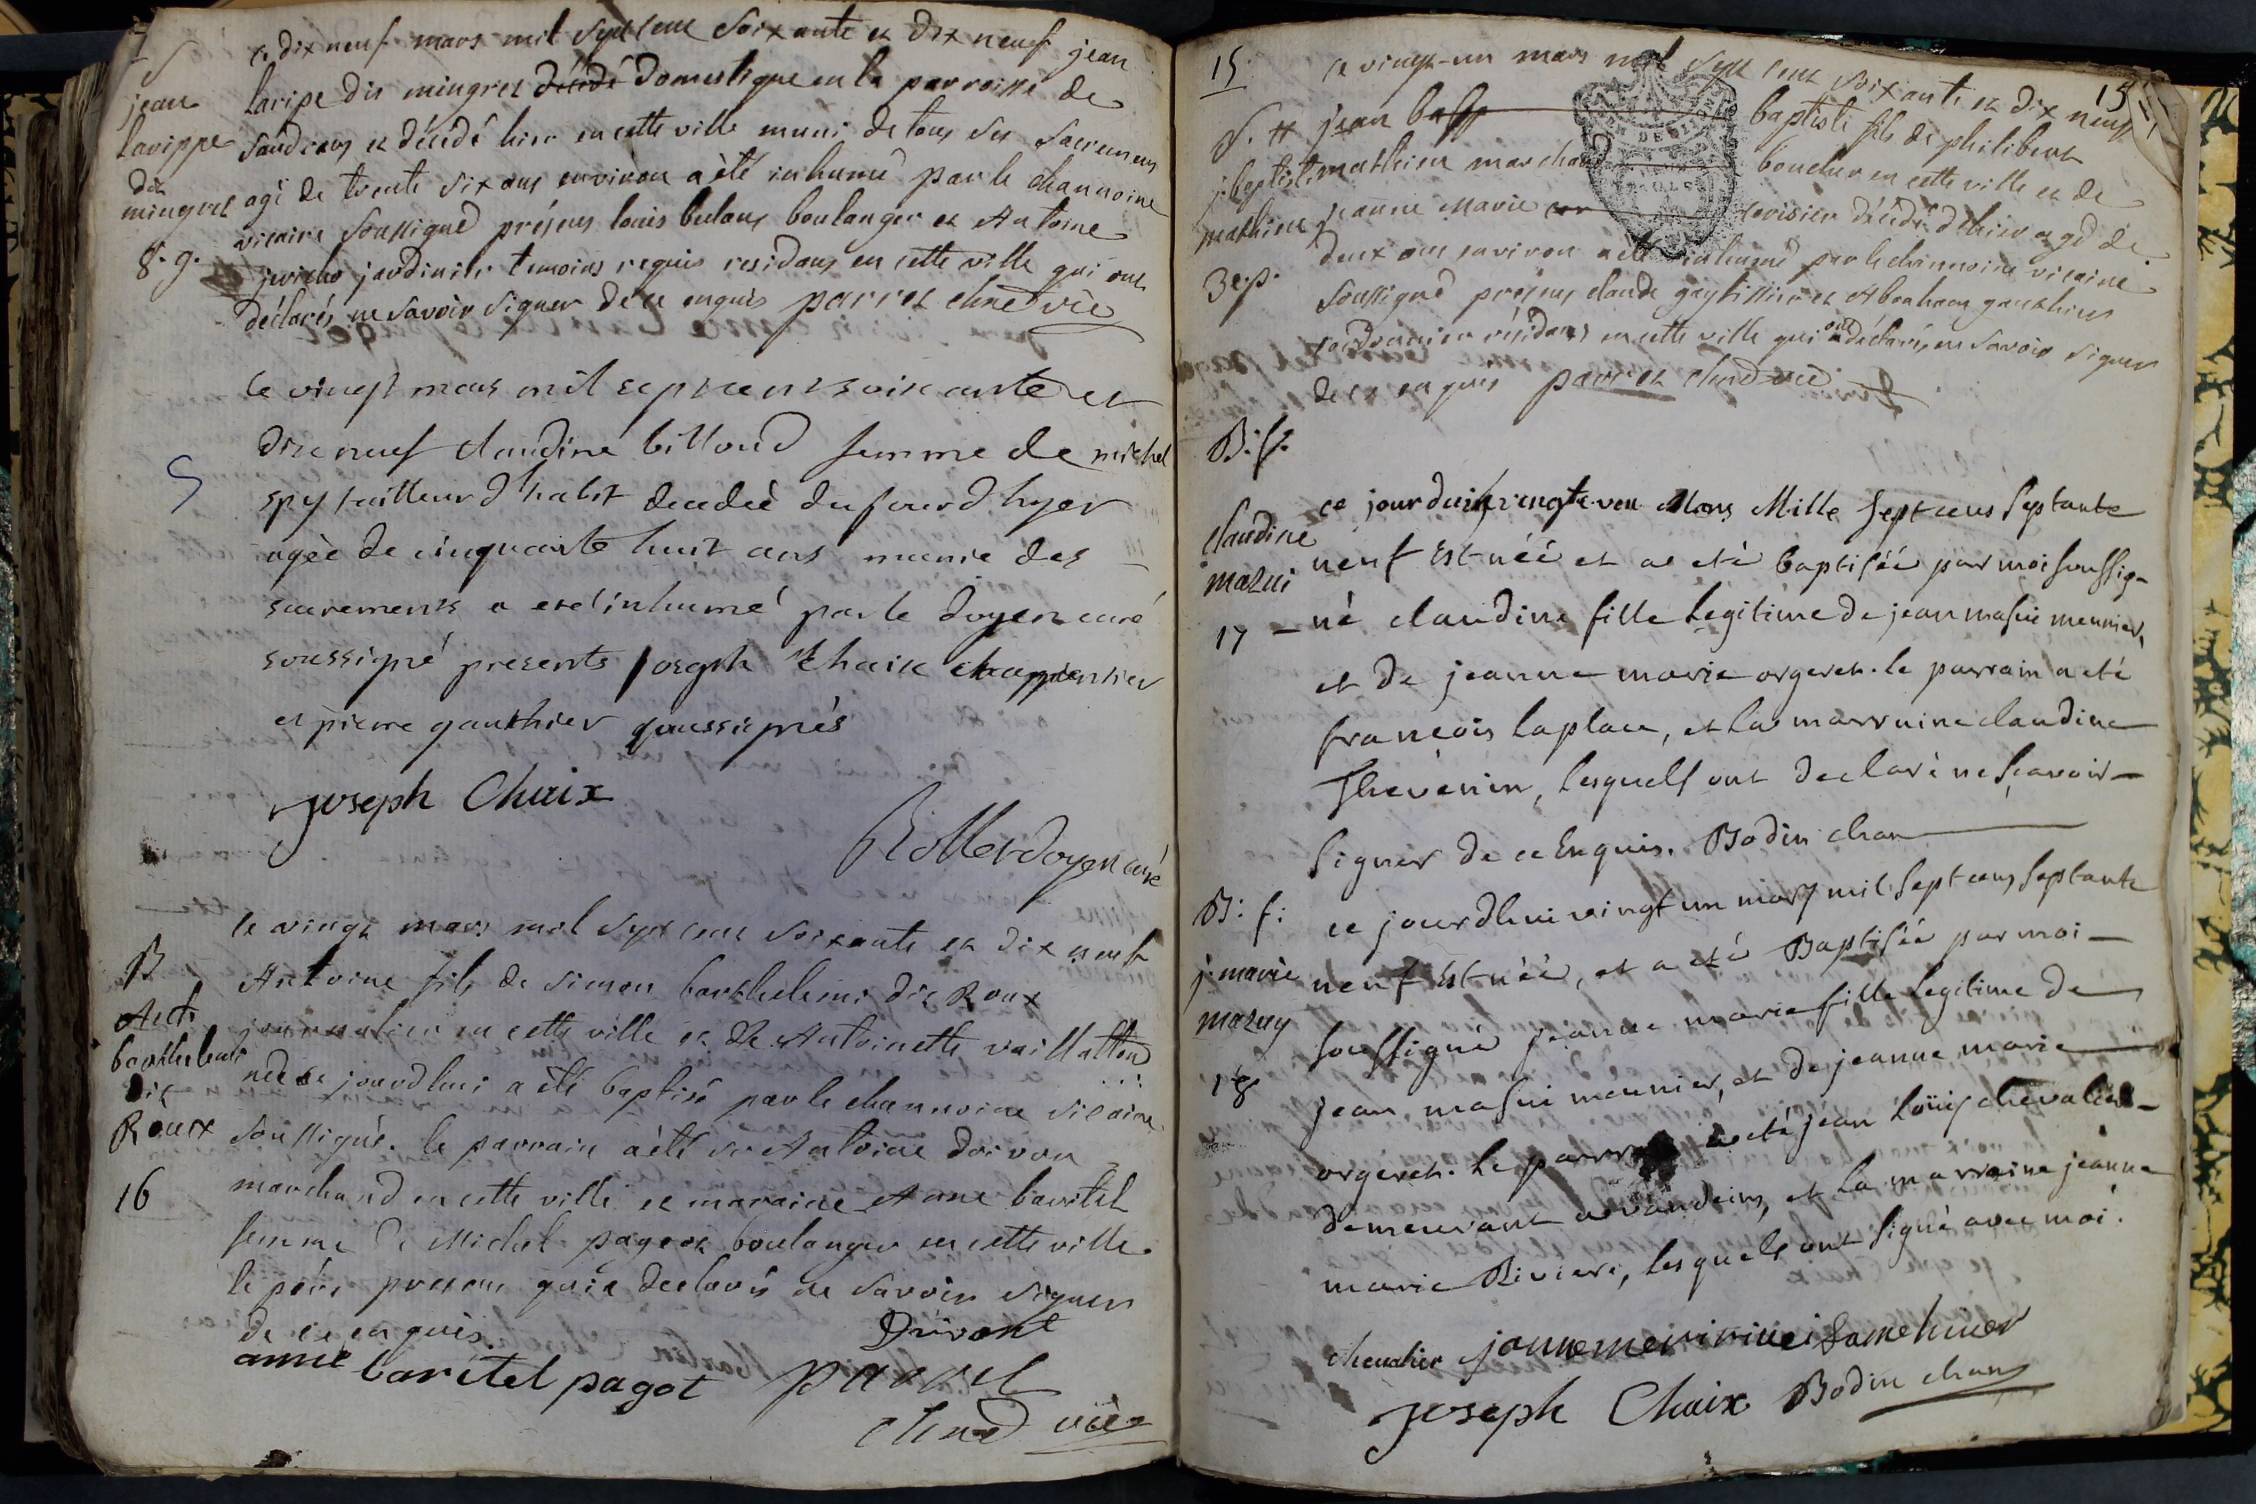 S
jean
larippe
dit
mingret
8. g.
ce dix neuf mars mil sept cent soixante et dix neuf jean
laripe dit mingret décédé domestique en la parroisse de
Sandrans et décédé hier en cette ville muni de tous ses sacremens
agé de trente six ans environ a été inhumé par le chanoine
vicaire soussigné présens louis bulans boulanger et Antoine
jardinier temoins requis residans en cette ville qui ont
déclarés ne savoir signer de ce enquis parret chne vic
S
le vingt mars mil sept cent soixante et
dix neuf claudine billoud femme de michel
spy tailleur d'habit decedeé du jour d'hyer
agèe de cinquante huit ans munie des
sacrements a eté inhumé par le doyen curé
soussigné presents joseph chaix charpentier
et pierre gauthier soussignés
joseph Chaix
Rollet doyen curé
B
Ant.
barthelemi
dit
Roux
16
le vingt mars mil sept cent soixante et dix neuf
Antoine fils de simon barthelemi dit Roux
journalier en cette ville et de Antoinette vaillatton
né ce jourdhui a été baptisé par le channoine vicaire
soussigné. le parrain a été sr Antoine doivon
marchand en cette ville et maraine Anne baritel
femme de Michel pagot boulanger en cette ville.
le père present qui a declaré ne savoir signer
de ce enquis
Drivont
anne baritel pagot parret
chne vic
15
15
S. #
j. baptiste
mathieu
3 e p.
le vingt-un mars mil sept cent soixante et dix neuf
jean baptiste fils de philibert
mathieu marchand boucher en cette ville et de
jeanne Marie cerisier décédé d'hier agé de
deux ans environ a été inhumé par le channoine vicaire
soussigné présens claude gay tissier et Abraham gauthier
cordonnier résidans en cette ville qui ont déclarés ne savoir signer
de ce enquis parret chne vic
B. f.
claudine
mazui
17
ce jourduihy vingte-un Mars Mille sept cens septante
neuf est néé et a eté baptiséé par moi soussig-
né claudine fille legitime de jean masui meunier,
et de jeanne marie orgeret. le parrain a eté
françois laplace, et la marraine claudine
Thevenin, lesquels ont declaré ne sçavoir
signer de ce Enquis. Bodin chan
B: f:
j. marie
mazuy
18
ce jourdhui vingt un mars mil sept cens septante
neuf est néé, et a eté Baptiséé par moi
soussigné jeanne marie fille legitime de
jean masui meunier, et de jeanne marie
orgeret. le parrain a eté jean loüis chevalier
demeurant a vandeins, et la marraine jeanne
marie Riviere, lesquels ont signé avec moi.
chevalier
joseph Chaix Bodin chan